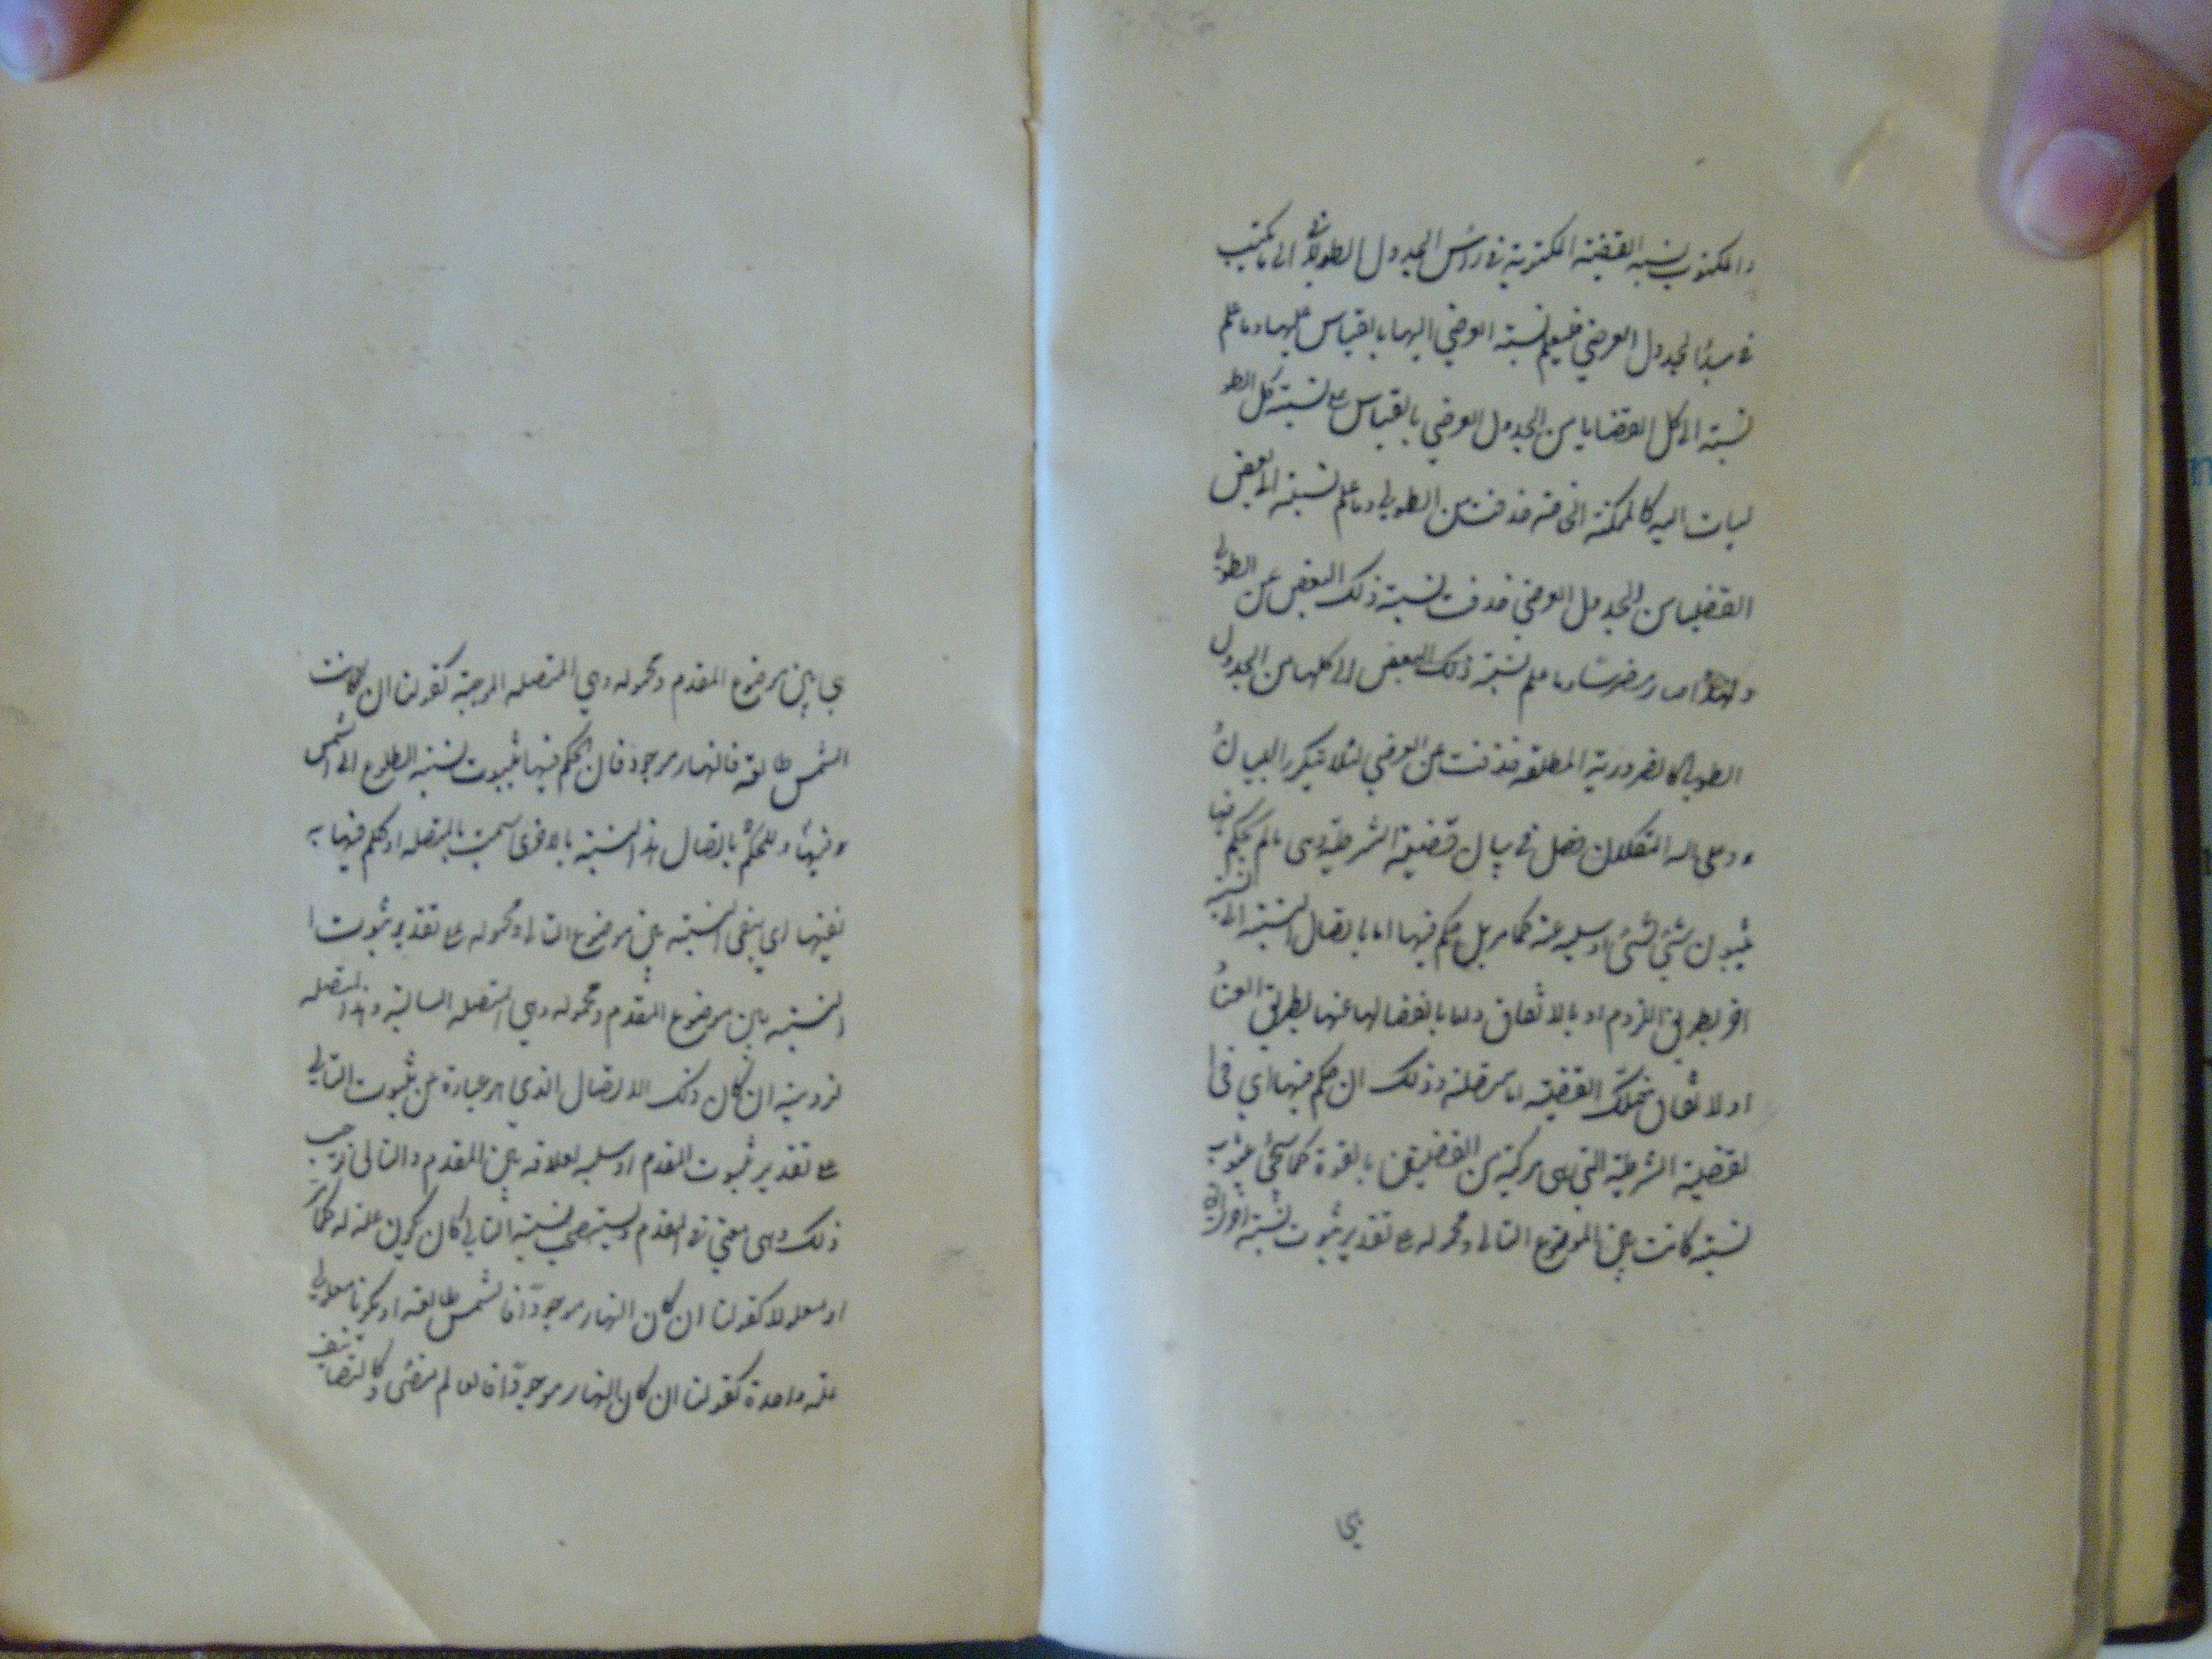 والمكتوب نسبة القضية المكتوبة في رؤس الجدول الطولاني الى ما كتب
في مبدأ الجدول العرضي فيعلم نسبة العرضي اليها بالقياس عليها وما علم
نسبته الى كل القضايا من الجدول العرضي بالقياس على نسبة كل الطو
ليات اليه كالممكنة الخاصة حذفت من الطولي وما علم نسبته الى بعض
القضايا من الجدول العرضي حذفت نسبة ذلك البعض عن الطولي
ولهذا صار وما علم نسبة ذلك البعض الى كلها من الجدول
الطولي كالضرورية المطلقة حذفت من العرضي لئلا يتكرر البيان
وعلى الله التكلان فصل في بيان قضية الشرطية وهى ما لم يحكم فيها
بثبوت شيئ لشئ او سلبه عنه كما مر بل حكم فيها اما باتصال النسبة الى
اخر بطريق اللزوم او بالاتفاق واما بانفصالها عنها بطريق العناد
او لاتفاق فتلك القضية اما متصلة وذلك ان حكم فيها اي فى
لقضية الشرطية التي هى مركبة من القضيتين بالقوة كما سيجئ بثبوت
نسبة كانت بين الموضوع التالى ومحموله على تقدير ثبوت نسبة اخرى
بى
بى بين موضوع المقدم ومحموله وهي المتصلة الموجبة كقولنا ان كانت
الشمس طالعة فالنهار موجود فان الحكم فيها بثبوت نسبة الطلوع الى الشمس
فيها وللحكم باتصال هذا النسبة بالاخرى سميت بالمتصلة او حكم فيها به
نفيها اي بنفي النسبة بين موضوع التالى ومحموله على تقدير ثبوت ا
لنسبة بين موضوع المقدم ومحموله وهي المتصلة السالبة وهذا المتصلة
لزومية ان كان ذلك الاتصال الذي هو عبارة عن ثبوت التالي
على تقدير ثبوت المقدم او سلبه لعلاقة بين المقدم والتالى توجب
ذلك وهى معنى في المقدم نسبة التالي كان يكون علة له كما مر
او معلولا كقولنا ان كان النهار موجودا فالشمس طالعة او يكونا معلولي
علة واحدة كقولنا ان كان النهار موجودا فالعالم مضئ وكالتضايف